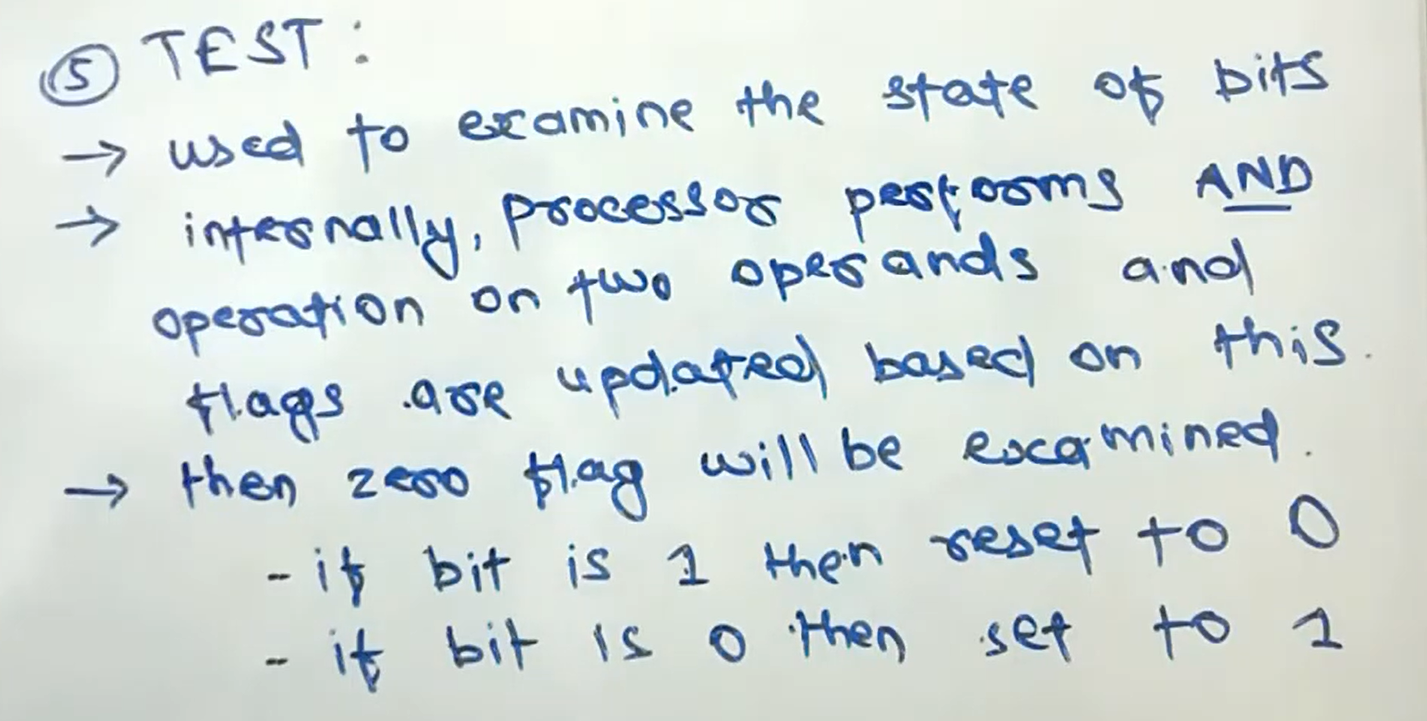 ⑤ TEST :
→ used to examine the state of bits
→ internally, processor performs AND
operation on two operands and
flags are updated based on this.
→ then zero flag will be examined.
- if bit is 1 then reset to 0
- if bit is 0 then set to 1